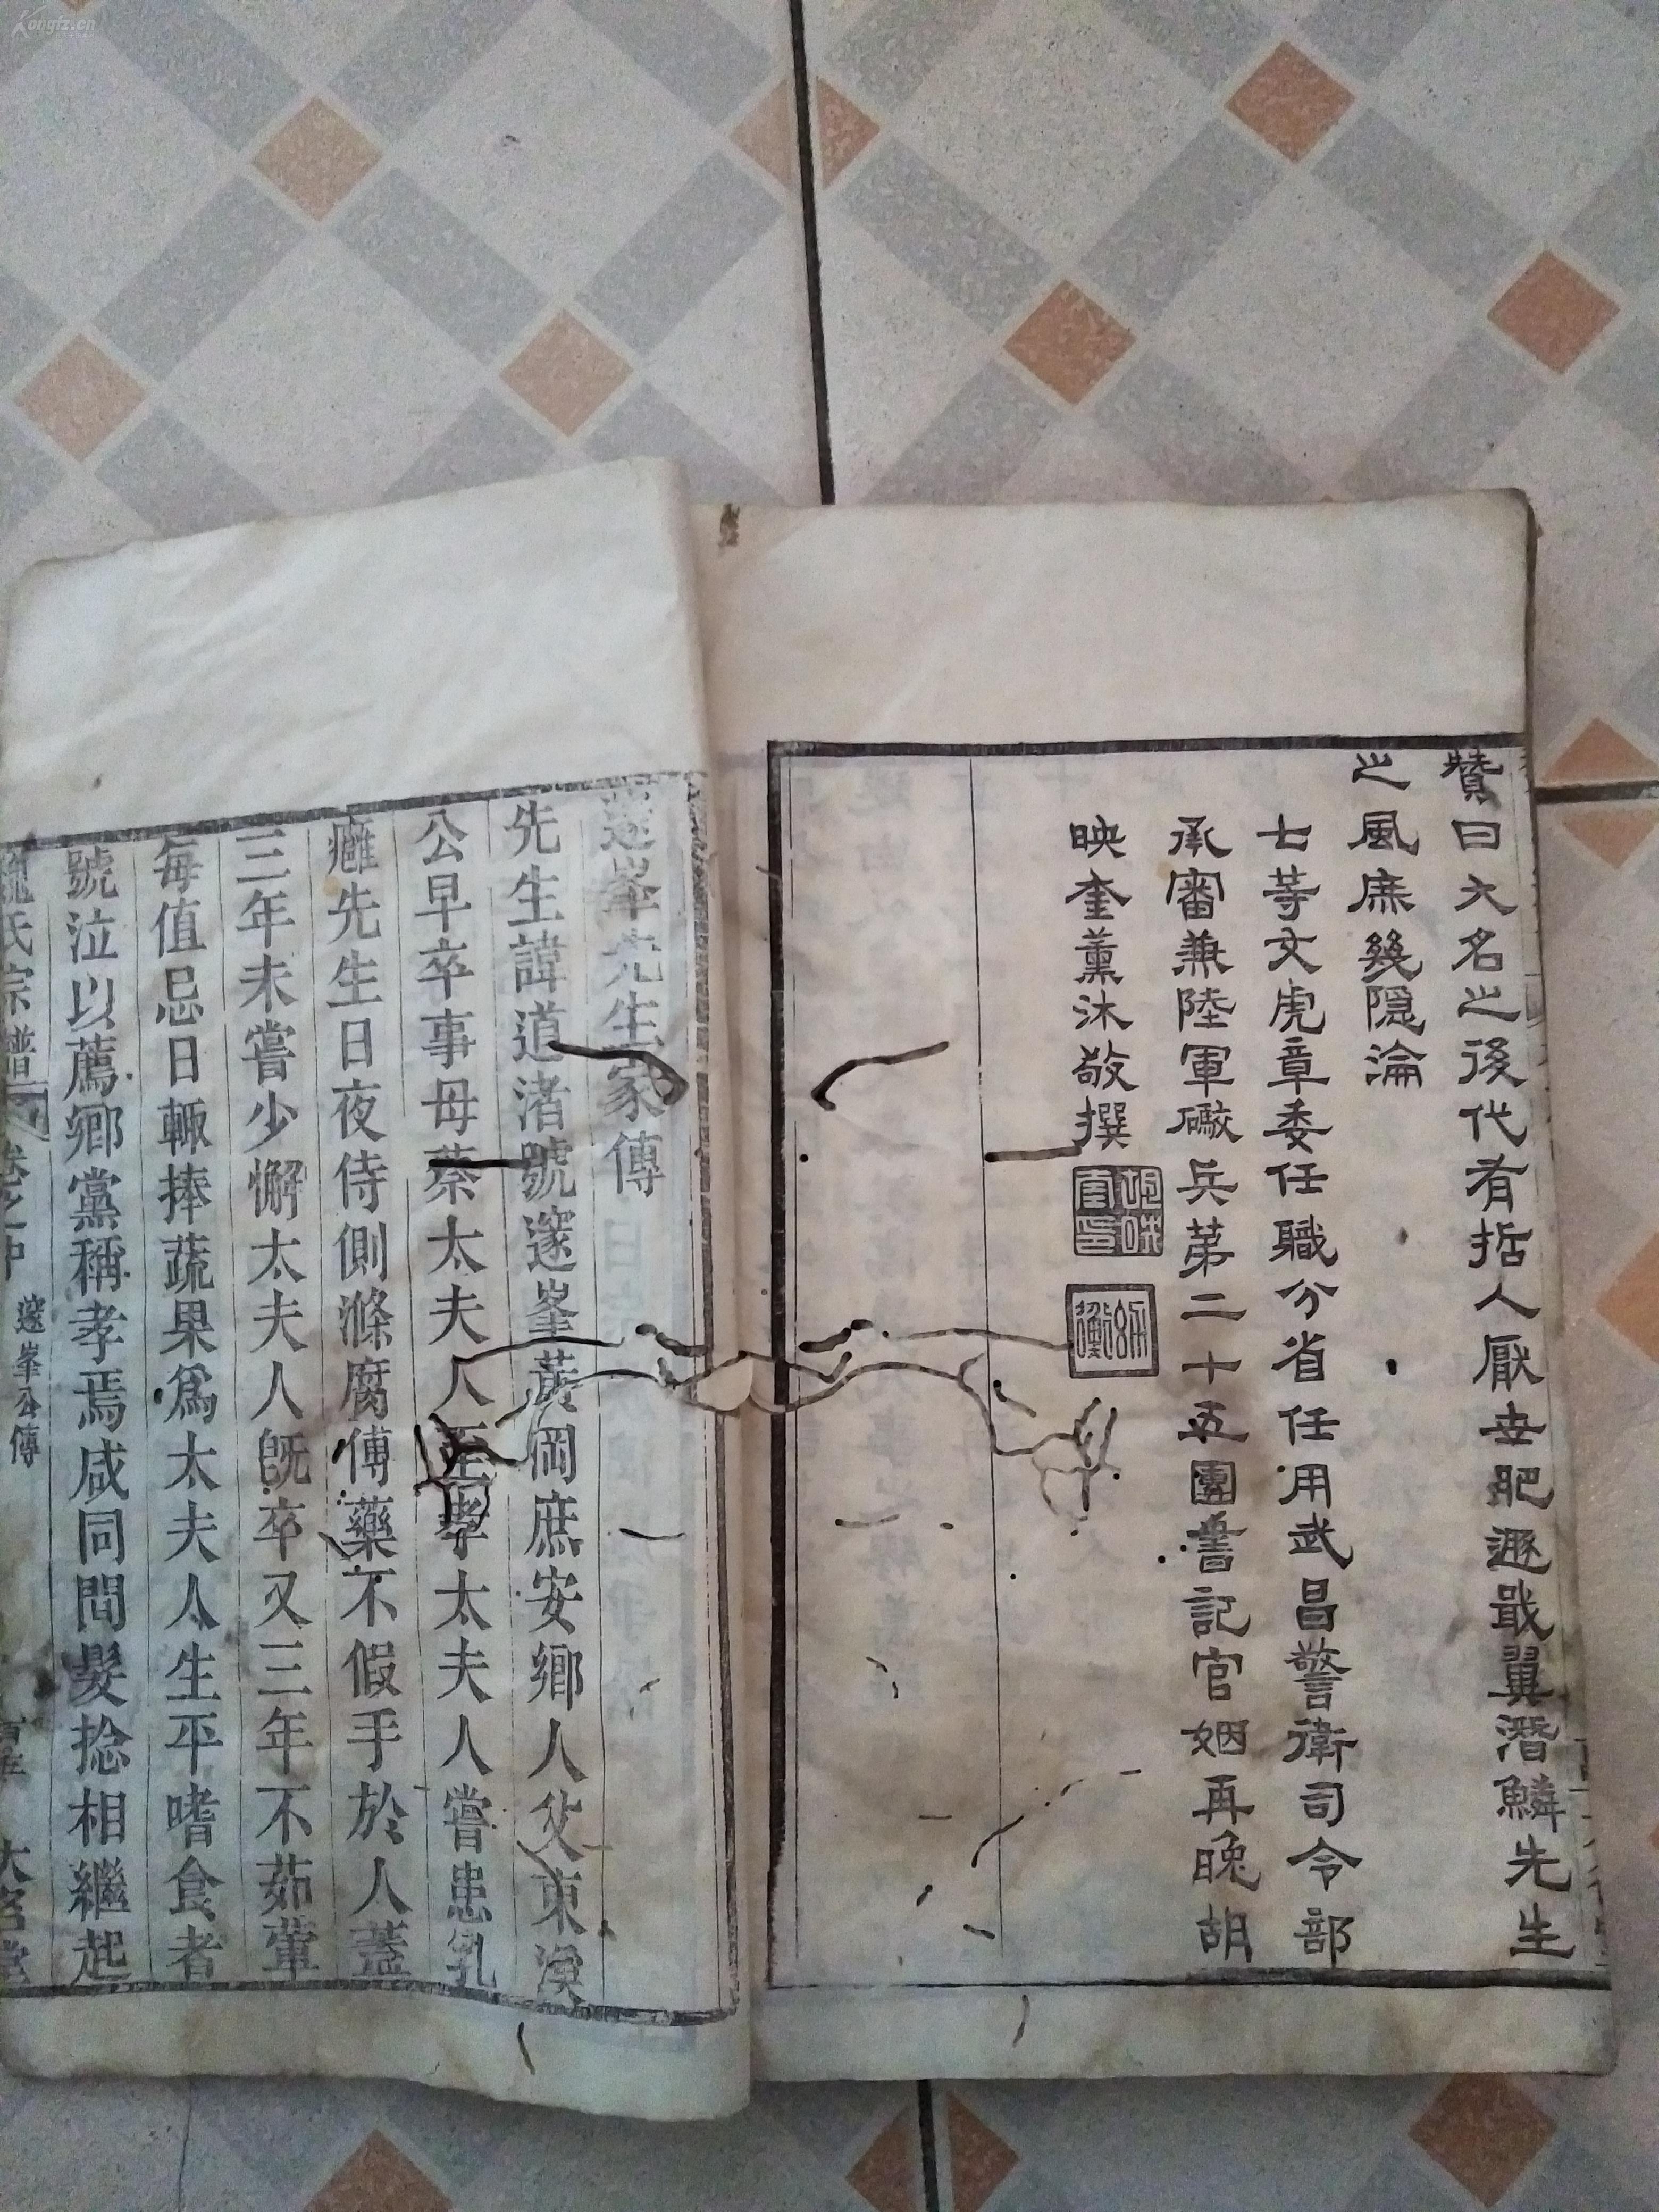 贊曰大名之後代有哲人厭世肥遯戢翼潛鱗先生
之風庶幾隱淪
七等文虎章委任職分省任用武昌警衛司令部
承審兼陸軍礮兵第二十五團書記官姻再晚胡
映奎薰沐敬撰
邃峯先生家傳
先生諱道渚號邃峯黃岡庶安鄉人父東溟
公早卒事母蔡太夫人至孝太夫人嘗患乳
癰先生日夜侍側滌腐傅藥不假手於人蓋
三年未嘗少懈太夫人旣卒又三年不茹葷
每值忌日輒捧蔬果爲太夫人生平嗜食者
號泣以薦鄉黨稱孝焉咸同間髮捻相繼起
氏宗譜 卷之中 邃峯公傳 大名堂
Kongfz.cn